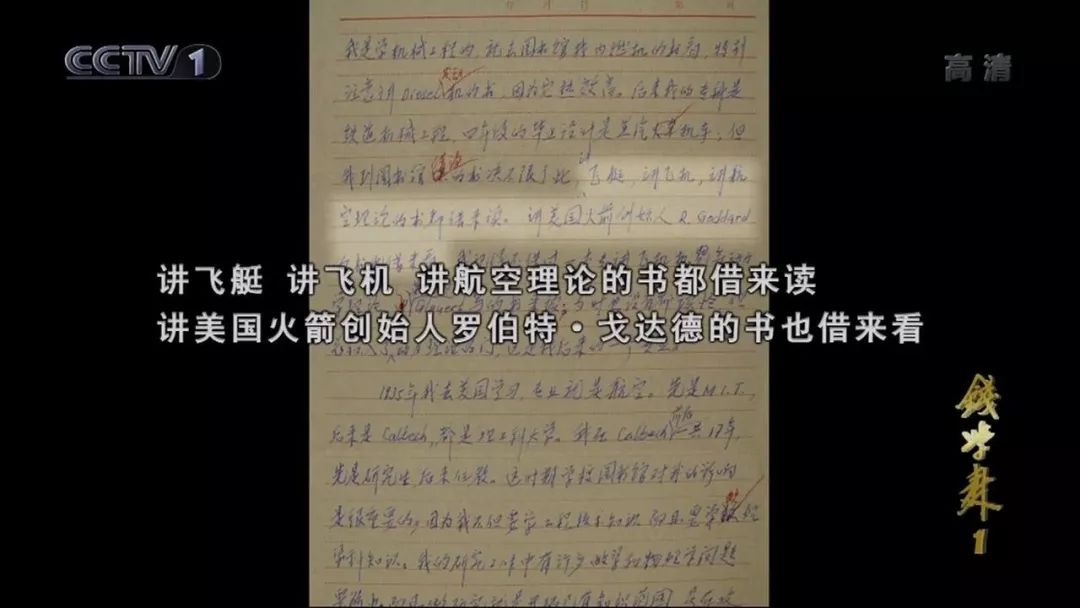 CCTV 1
高清
我是学机械工程的，就去图书馆找内燃机的书看，特别
注意讲Diesel机的书，因为它热效高。后来我的专业是
铁道机械工程，四年级的毕业设计是蒸汽机车，但
我到图书馆读的书决不限于此，讲飞艇，讲飞机，讲航
空理论的书都借来读。讲美国火箭创始人R. Goddard
讲飞艇 讲飞机 讲航空理论的书都借来读
讲美国火箭创始人罗伯特·戈达德的书也借来看
1935年我去美国学习，专业就是航空。先是M.I.T.，
后来是Caltech，都是理工科大学。我在Caltech前后一共17年，
先是研究生，后来任教。这时期学校图书馆对我的影响
是很重要的，因为我不但要学工程技术知识，而且要学
学科知识。我的研究工作中有许多数学和物理学问题
钱学森 1